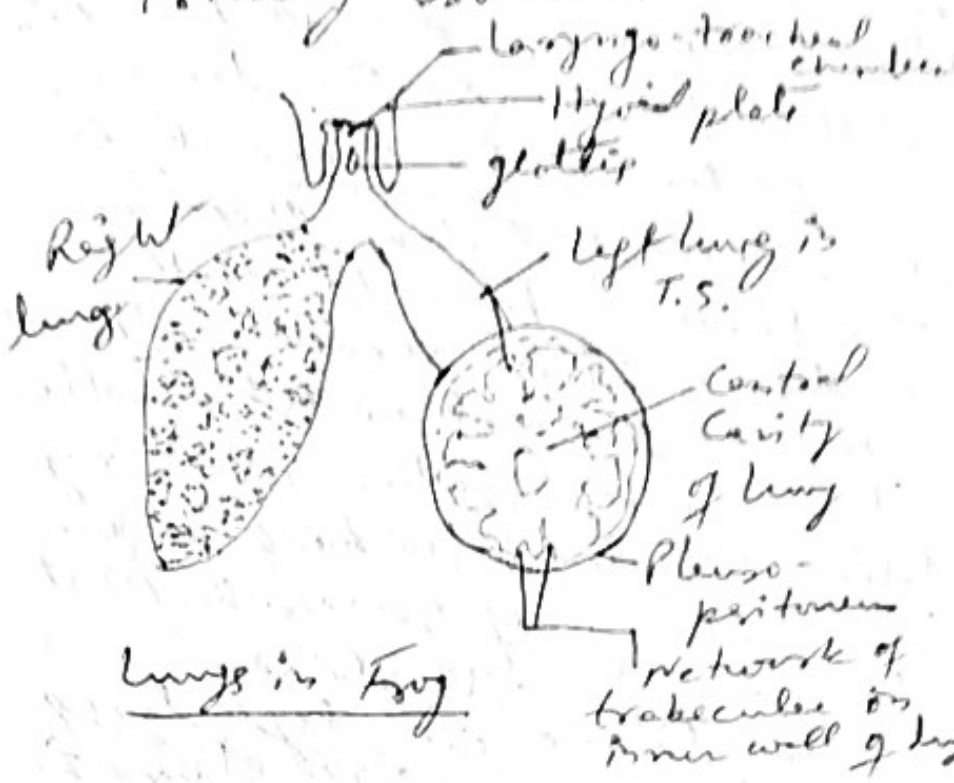 Laryngo-tracheal
chamber
Hyoid plate
glottis
Right
lung
Left lung in
T.S.
Central
Cavity
of lung
Pleuro-
peritoneum
Network of
trabeculae on
inner wall of
Lungs in Frog